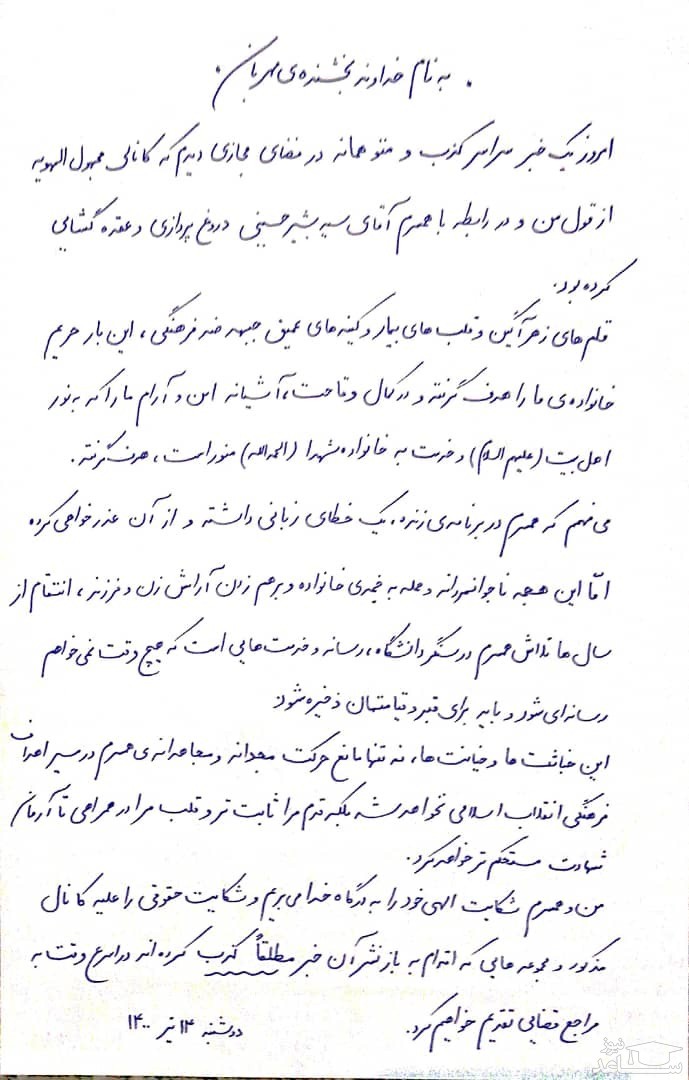 به نام خداوند بخشنده‌ی مهربان.
امروز یک خبر سراسر کذب و متوهمانه در فضای مجازی دیدم که کانالی مجهول الهویه
از قول من و در رابطه با همسرم آقای سید بشیر حسینی دروغ پردازی و عقده گشایی
کرده بود.
قلم‌های زهرآگین و قلب‌های بیمار و کینه‌های عمیق جبهه ضد فرهنگی، این بار حریم
خانواده‌ی ما را هدف گرفته و در کمال وقاحت، آشیانه امن و آرام ما را که به نور
اهل بیت (علیهم السلام) و خدمت به خانواده شهدا (الحمدالله) منور است، هدف گرفته.
می‌فهمم که همسرم در برنامه‌ی زنده، یک خطای زبانی داشته و از آن عذرخواهی کرده
امّا این هجمه ناجوانمردانه و حمله به خیمه‌ی خانواده و برهم زدن آرامش زن و فرزند، انتقام از
سال‌ها تلاش همسرم در سنگر دانشگاه، رسانه و خدمت‌هایی است که هیچ وقت نمی‌خواهم
رسانه‌ای شود و باید برای قبر و قیامتمان ذخیره شود.
این خباثت‌ها و خیانت‌ها، نه تنها مانع حرکت مجدانه و مجاهدانه‌ی همسرم در مسیر اهداف
فرهنگی انقلاب اسلامی نخواهد شد بلکه قدم مرا ثابت تر و قلب مرا در همراهی تا آرمان
شهادت مستحکم تر خواهد کرد.
من و همسرم شکایت الهی خود را به درگاه خدا می‌بریم و شکایت حقوقی را علیه کانال
مذکور و مجموعه هایی که اقدام به بازنشر آن خبر مطلقاً کذب کرده اند در اسرع وقت به
مراجع قضایی تقدیم خواهیم کرد.
دوشنبه ۱۴ تیر ۱۴۰۰